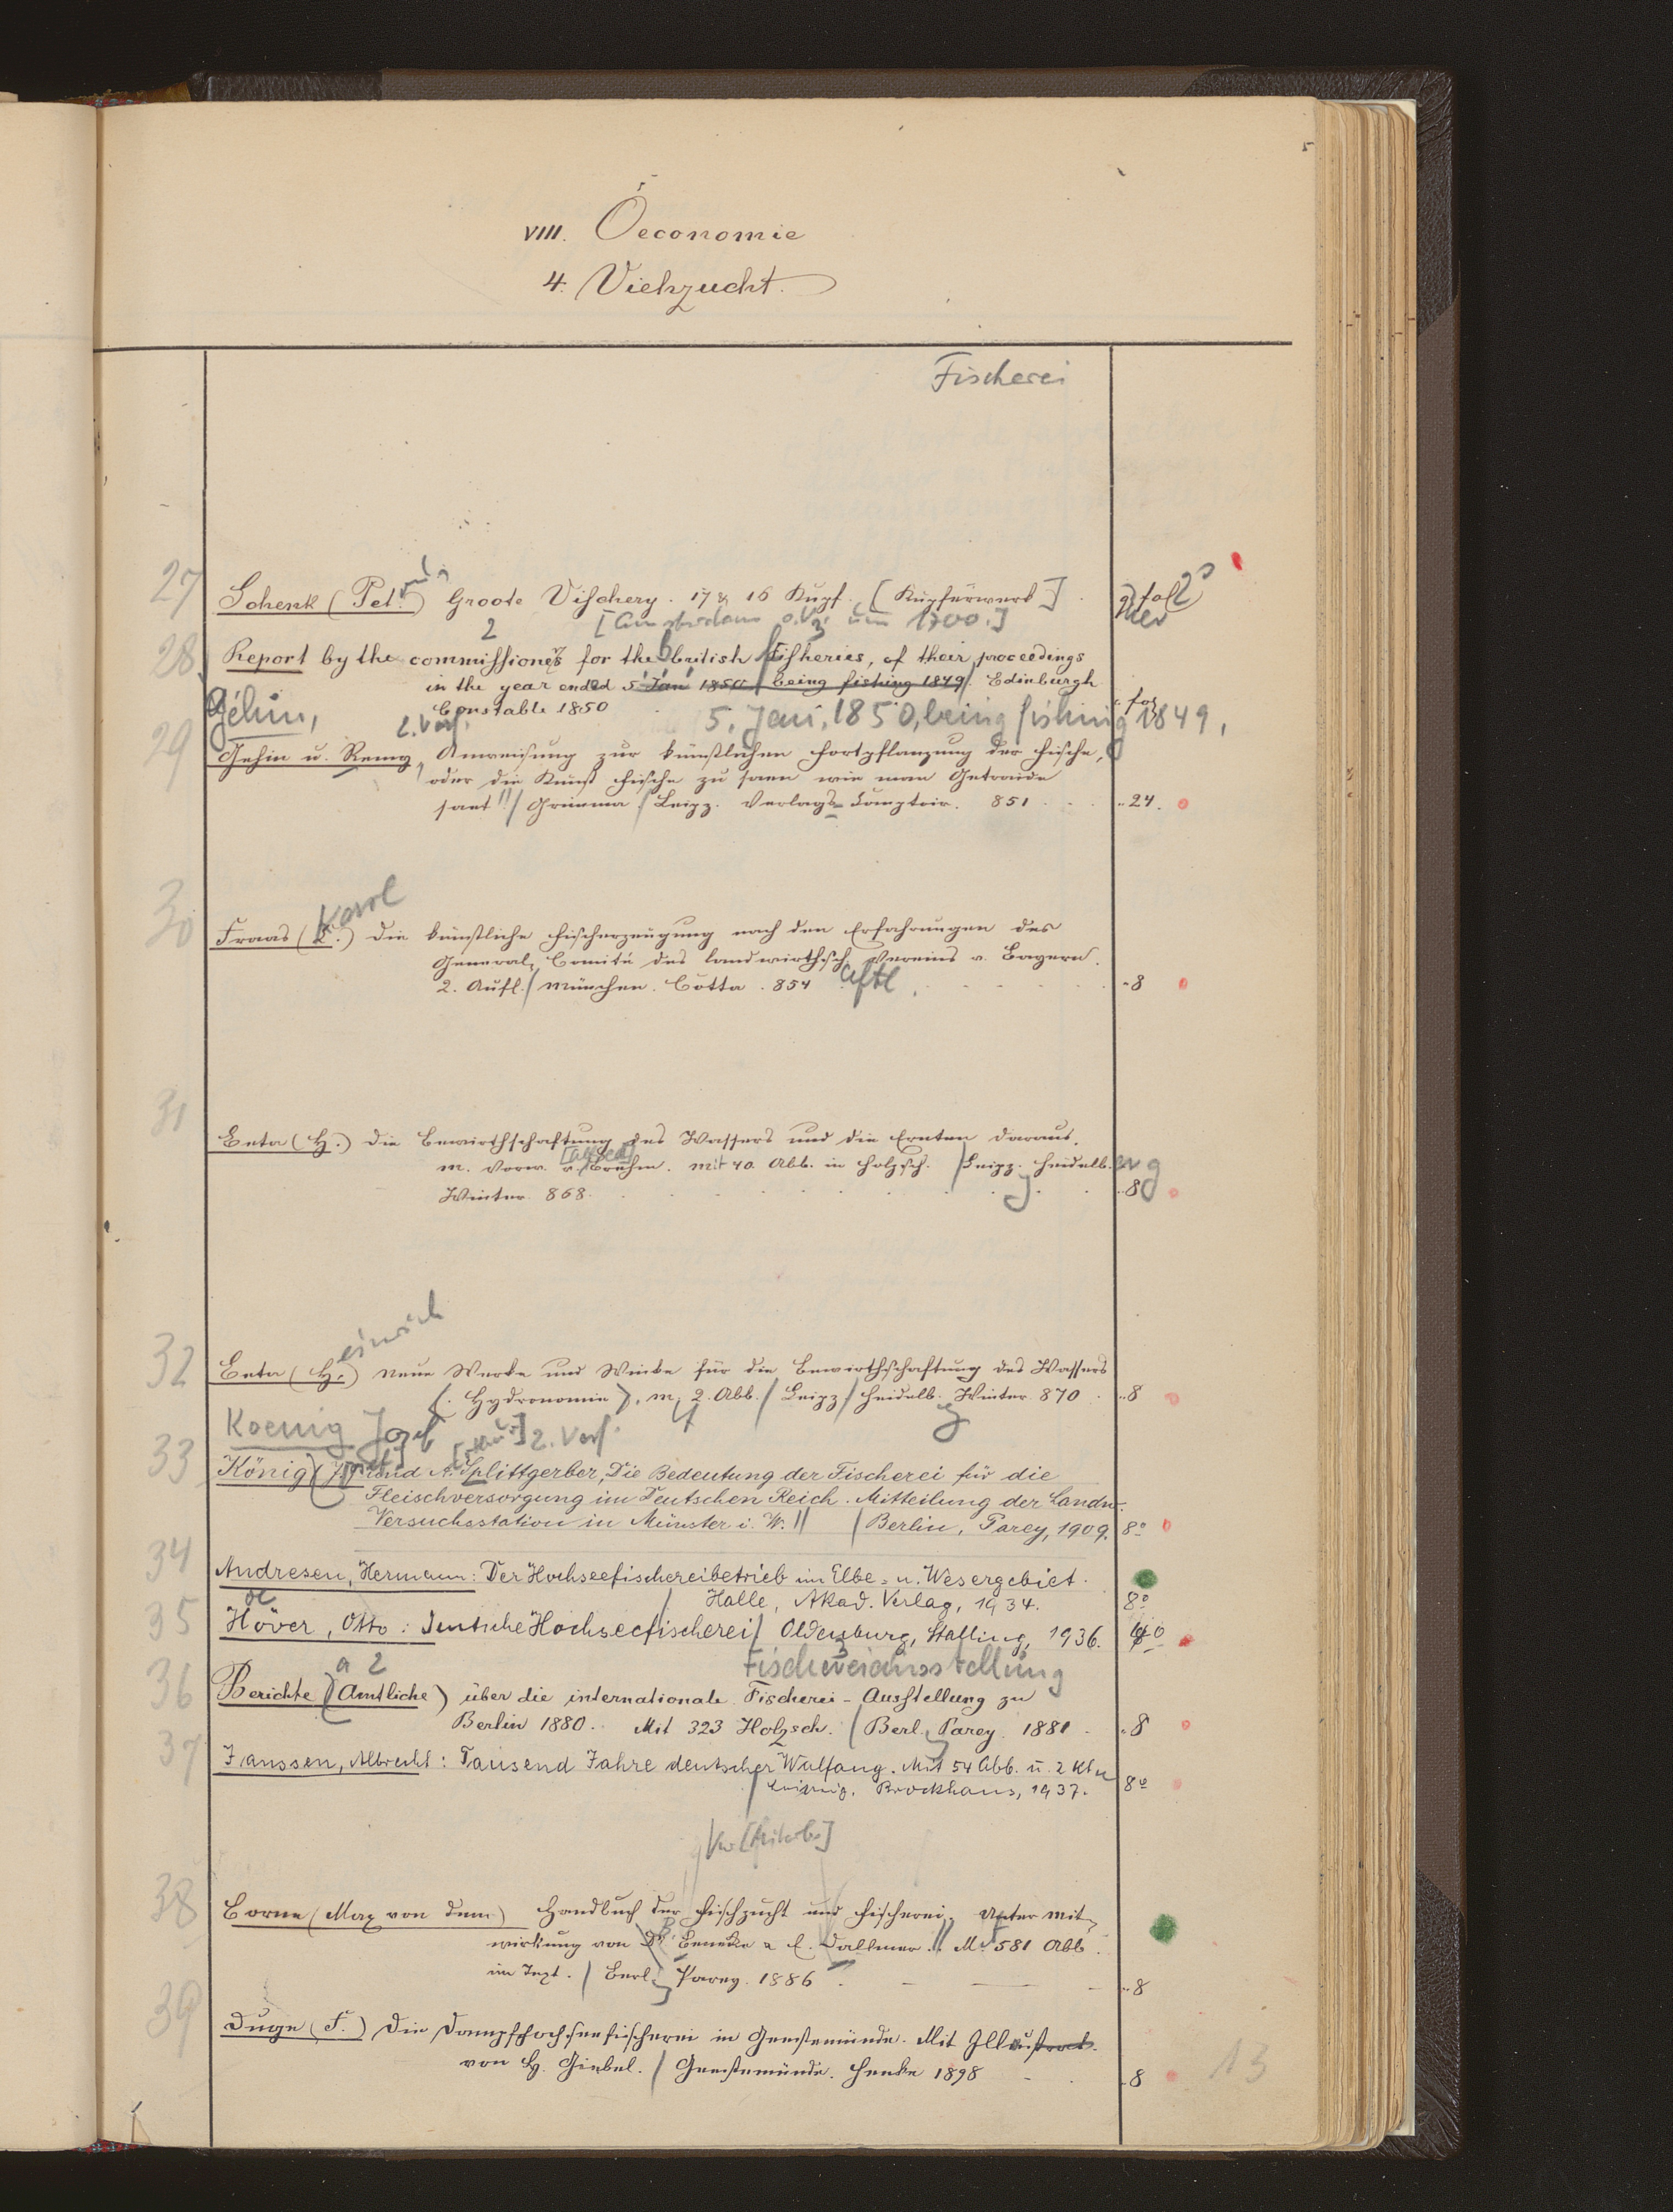 5
VIII. Oeconomie
4. Viehzucht.
Fischerei
27 Schenk (Pet.) Groote Visschery. 17 & 16 Kupf. [Kupferwerk].
[Amsterdam o.V. um 1700.]
28 Report by the commissioners for the british fisheries, of their proceedings
in the year ended 5 Jan 1850 being fishing 1849. Edinburgh
Constable 1850
5. Jan. 1850, being fishing 1849,
Géhin, 2. Verf.
29 Gehin u. Remy, Anweisung zur künstlichen Fortpflanzung der Fische,
oder die Kunst Fische zu säen wie man Getraide
saet!! / Grimma / Leipz. Verlags-Comptoir. 851 . . . „ 24.
Karl
30 Fraas (K.) die künstliche Fischerzeugung nach den Erfahrungen des
General-Comité des landwirthsch. Vereins v. Bayern.
2. Aufl. / München. Cotta. 854 . . . „ 8
31 Beta (H.) die Bewirthschaftung des Wassers und die Ernten daraus.
m. Vorw. v. [Alfred] Brehm. mit 40 Abb. in Holzsch. / Leipz. Heidelb. erg
Winter. 868. . . . „ 8
einrich
32 Beta (H.) neue Werke und Winke für die Bewirthschaftung des Wassers
(Hydronomie), m. 2. Abb. / Leipz / Heidelb. Winter. 870 . „ 8
Koenig Josef 2. Verf.
33 König (J.) und A. Splittgerber, Die Bedeutung der Fischerei für die
Fleischversorgung im Deutschen Reich. Mitteilung der Landw.
Versuchsstation in Münster i. W. || / Berlin, Parey, 1909. 8°
34 Andresen, Hermann: Der Hochseefischereibetrieb im Elbe- u. Wesergebiet.
/ Halle, Akad. Verlag, 1934. 8°
oe
35 Höver, Otto: Deutsche Hochseefischerei / Oldenburg, Stalling, 1936.
a 2 Fischereiausstellung
36 Berichte (Amtliche) über die internationale Fischerei-Ausstellung zu
Berlin 1880. Mit 323 Holzsch. / Berl. Parey. 1881 . „ 8
37 Janssen, Albrecht: Tausend Jahre deutscher Walfang. Mit 54 Abb. u. 2 Ktn
/ Leipzig, Brockhaus, 1937. 8°
38 Borne (Max von dem) Handbuch der Fischzucht und Fischerei. Unter Mit-
wirkung von Dr. Benecke u. E. Dallmer. || M. 581 Abb.
im Text. / Berl. Parey. 1886 . „ 8
39 Duge (F.) Die Dampfhochseefischerei in Geestemünde. Mit Illustrat.
von H. Giebel. / Geestemünde. Henke 1898 „ 8
13